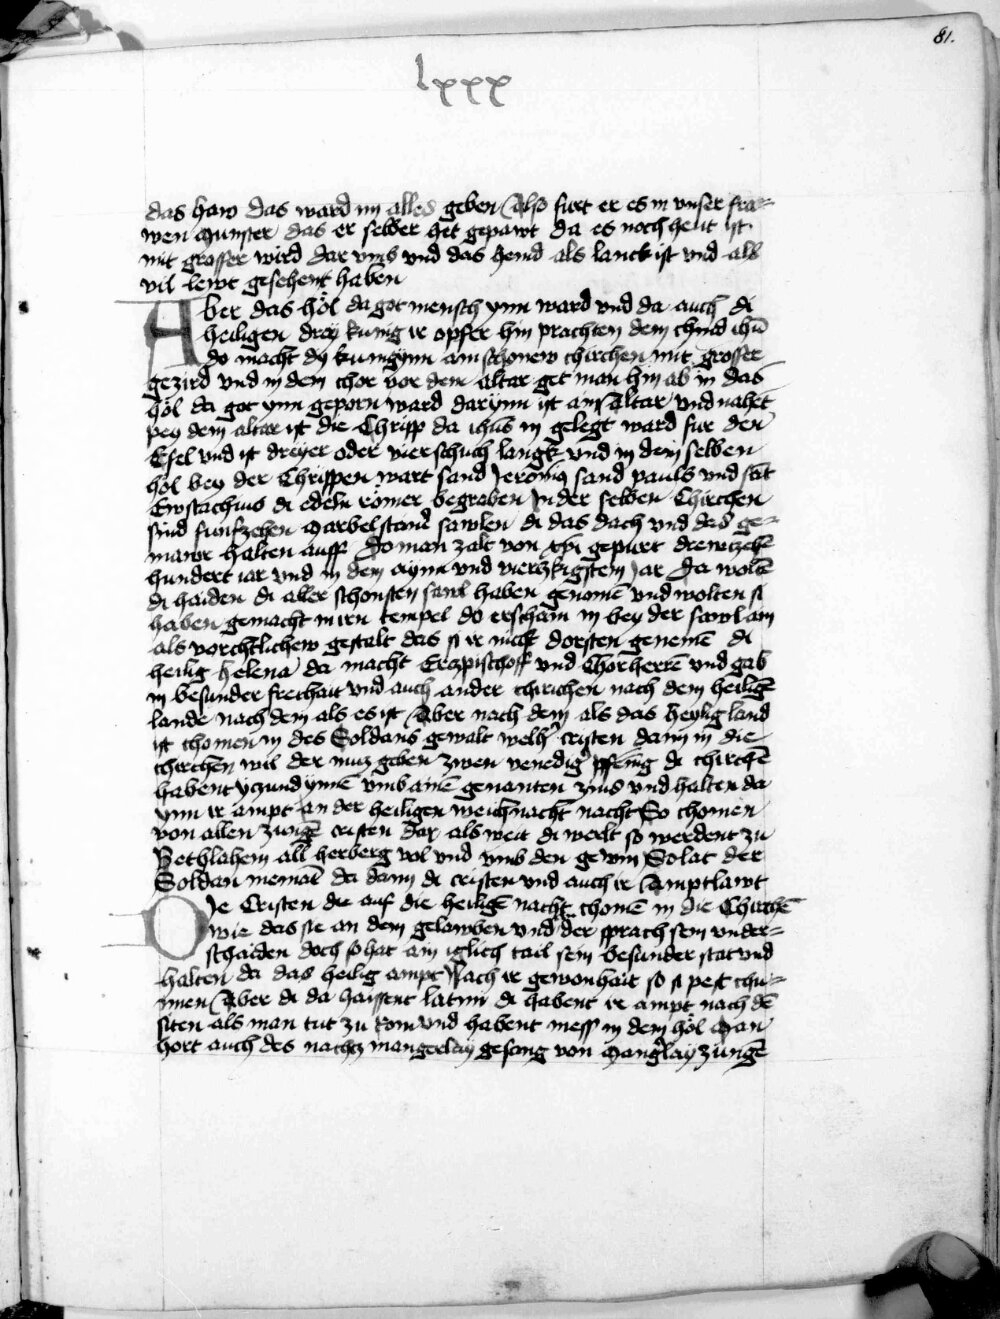 81.
lxxx
das haw das ward im alles geben Also furt er es in unser fra-
wen Munster das er selber het gepawt da es noch heut ist
mit grosser wird dar umb und das hemd als lanck ist und als
vil lewt gesehent haben
Aber das höl da got mensch ynn ward und da auch di
heiligen drey kunig ir opfer hin prachten dem chind ihū
do macht dy kunigynn ain schonew chirchen mit grosser
gezird und in dem chor vor dem altar get man hin ab in das
höl da got ynn geporn ward darynn ist ain altar und nahet
pey dem altar ist die Chripp da ihūs in gelegt ward fur den
Esel und ist dreyer oder vier schuch langk und in dem selben
höl bey der Chrippen wart sand Jeronimus sand pauls und sāt
Ewstachius di edeln römer begraben In der selben Chirchen
sind funfzehen Marbelstainē sawlen di das dach und das ge-
mawr halten auff Do man zalt von xpi gepurt drewtzehē
hundert iar und in dem aynn und vierczkigstem Jar Da woltē
di haiden di aller schonsten sawl haben genomē und wolten si
haben gemacht in irn tempel do erschain in bey der sawl ain
als vorchtlichew gestalt das si ir nicht dorsten genemē di
heilig helena da macht Erczpischoff und Chorherrē und gab
in besunder freihait und auch ander chirichen nach dem heiligē
lande nach dem als es ist Aber nach dem als das heylig land
ist chomen in des Soldans gewalt welhʼ cristen dann in die
chirchen wil der muz geben zwen venedigʼ pfēnig di chirchē
habent yczund ynnē umb ainē genanten zins und halten da
ynn ir ampt an der heiligen weichnacht nacht So chomen
von allen zungē cristen dar als weit di werlt so werdent zu
Bethlahem all herberg vol und umb den gewin Solat der
Soldan niemāt da dann di cristen und auch ir Amptlawt
Die Cristen die auf die heiligē nacht chomē in die Chirchē
wie das sie an dem gelawben und der sprach sein under-
schaiden doch so hat ain iglich tail sein besunder stat und
halten da das heilig ampt Nach ir gewonhait so si pest chu-
nnen Aber di da haissent latini di habent ir ampt nach dē
siten als man tut zu Rom und habent mess in dem höl Man
hort auch des nachtz mangerlay gesang von Mangʼlay zungē